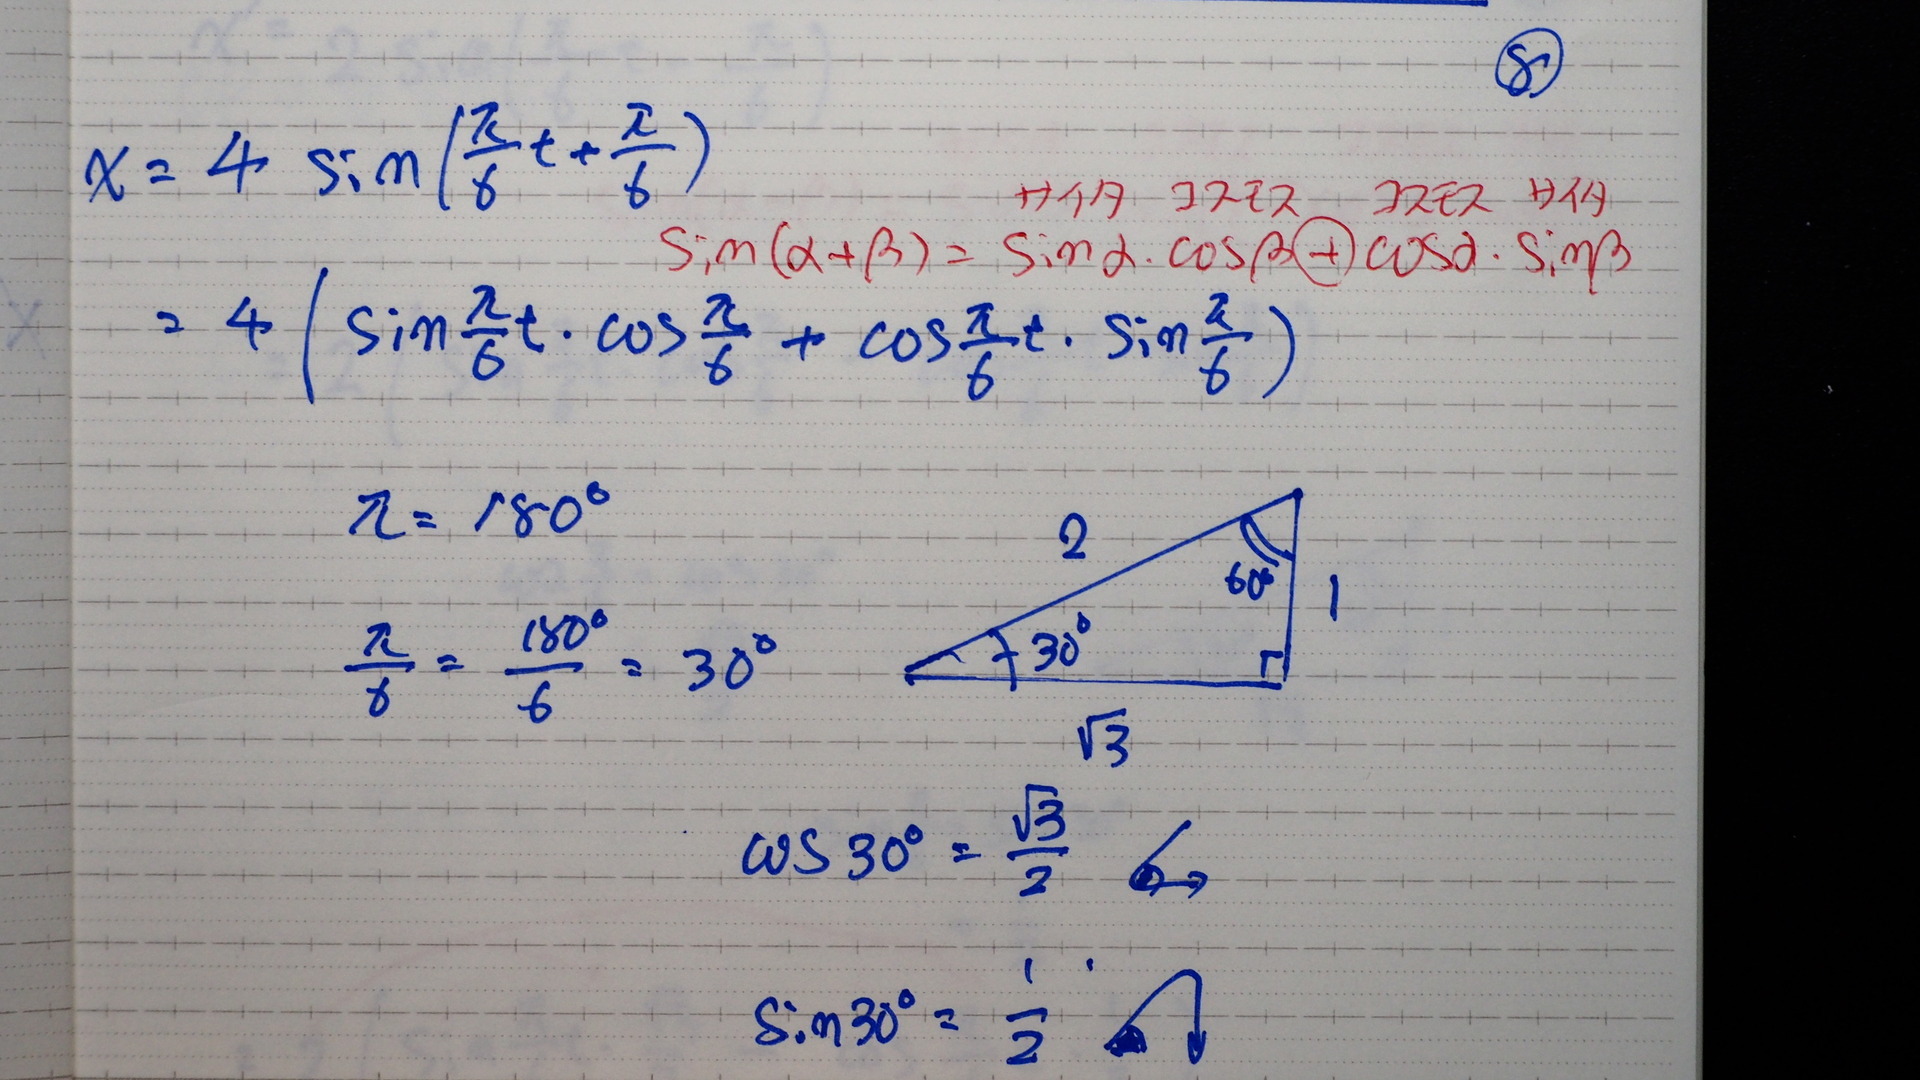 ⑧
x = 4 sin(π/6 t + π/6)
サイタ コスモス コスモス サイタ
sin(α+β) = sinα・cosβ ⊕ cosα・sinβ
= 4(sin π/6 t・cos π/6 + cos π/6 t・sin π/6)
π = 180°
π/6 = 180°/6 = 30°
2
60°
1
30°
√3
cos30° = √3/2
sin30° = 1/2